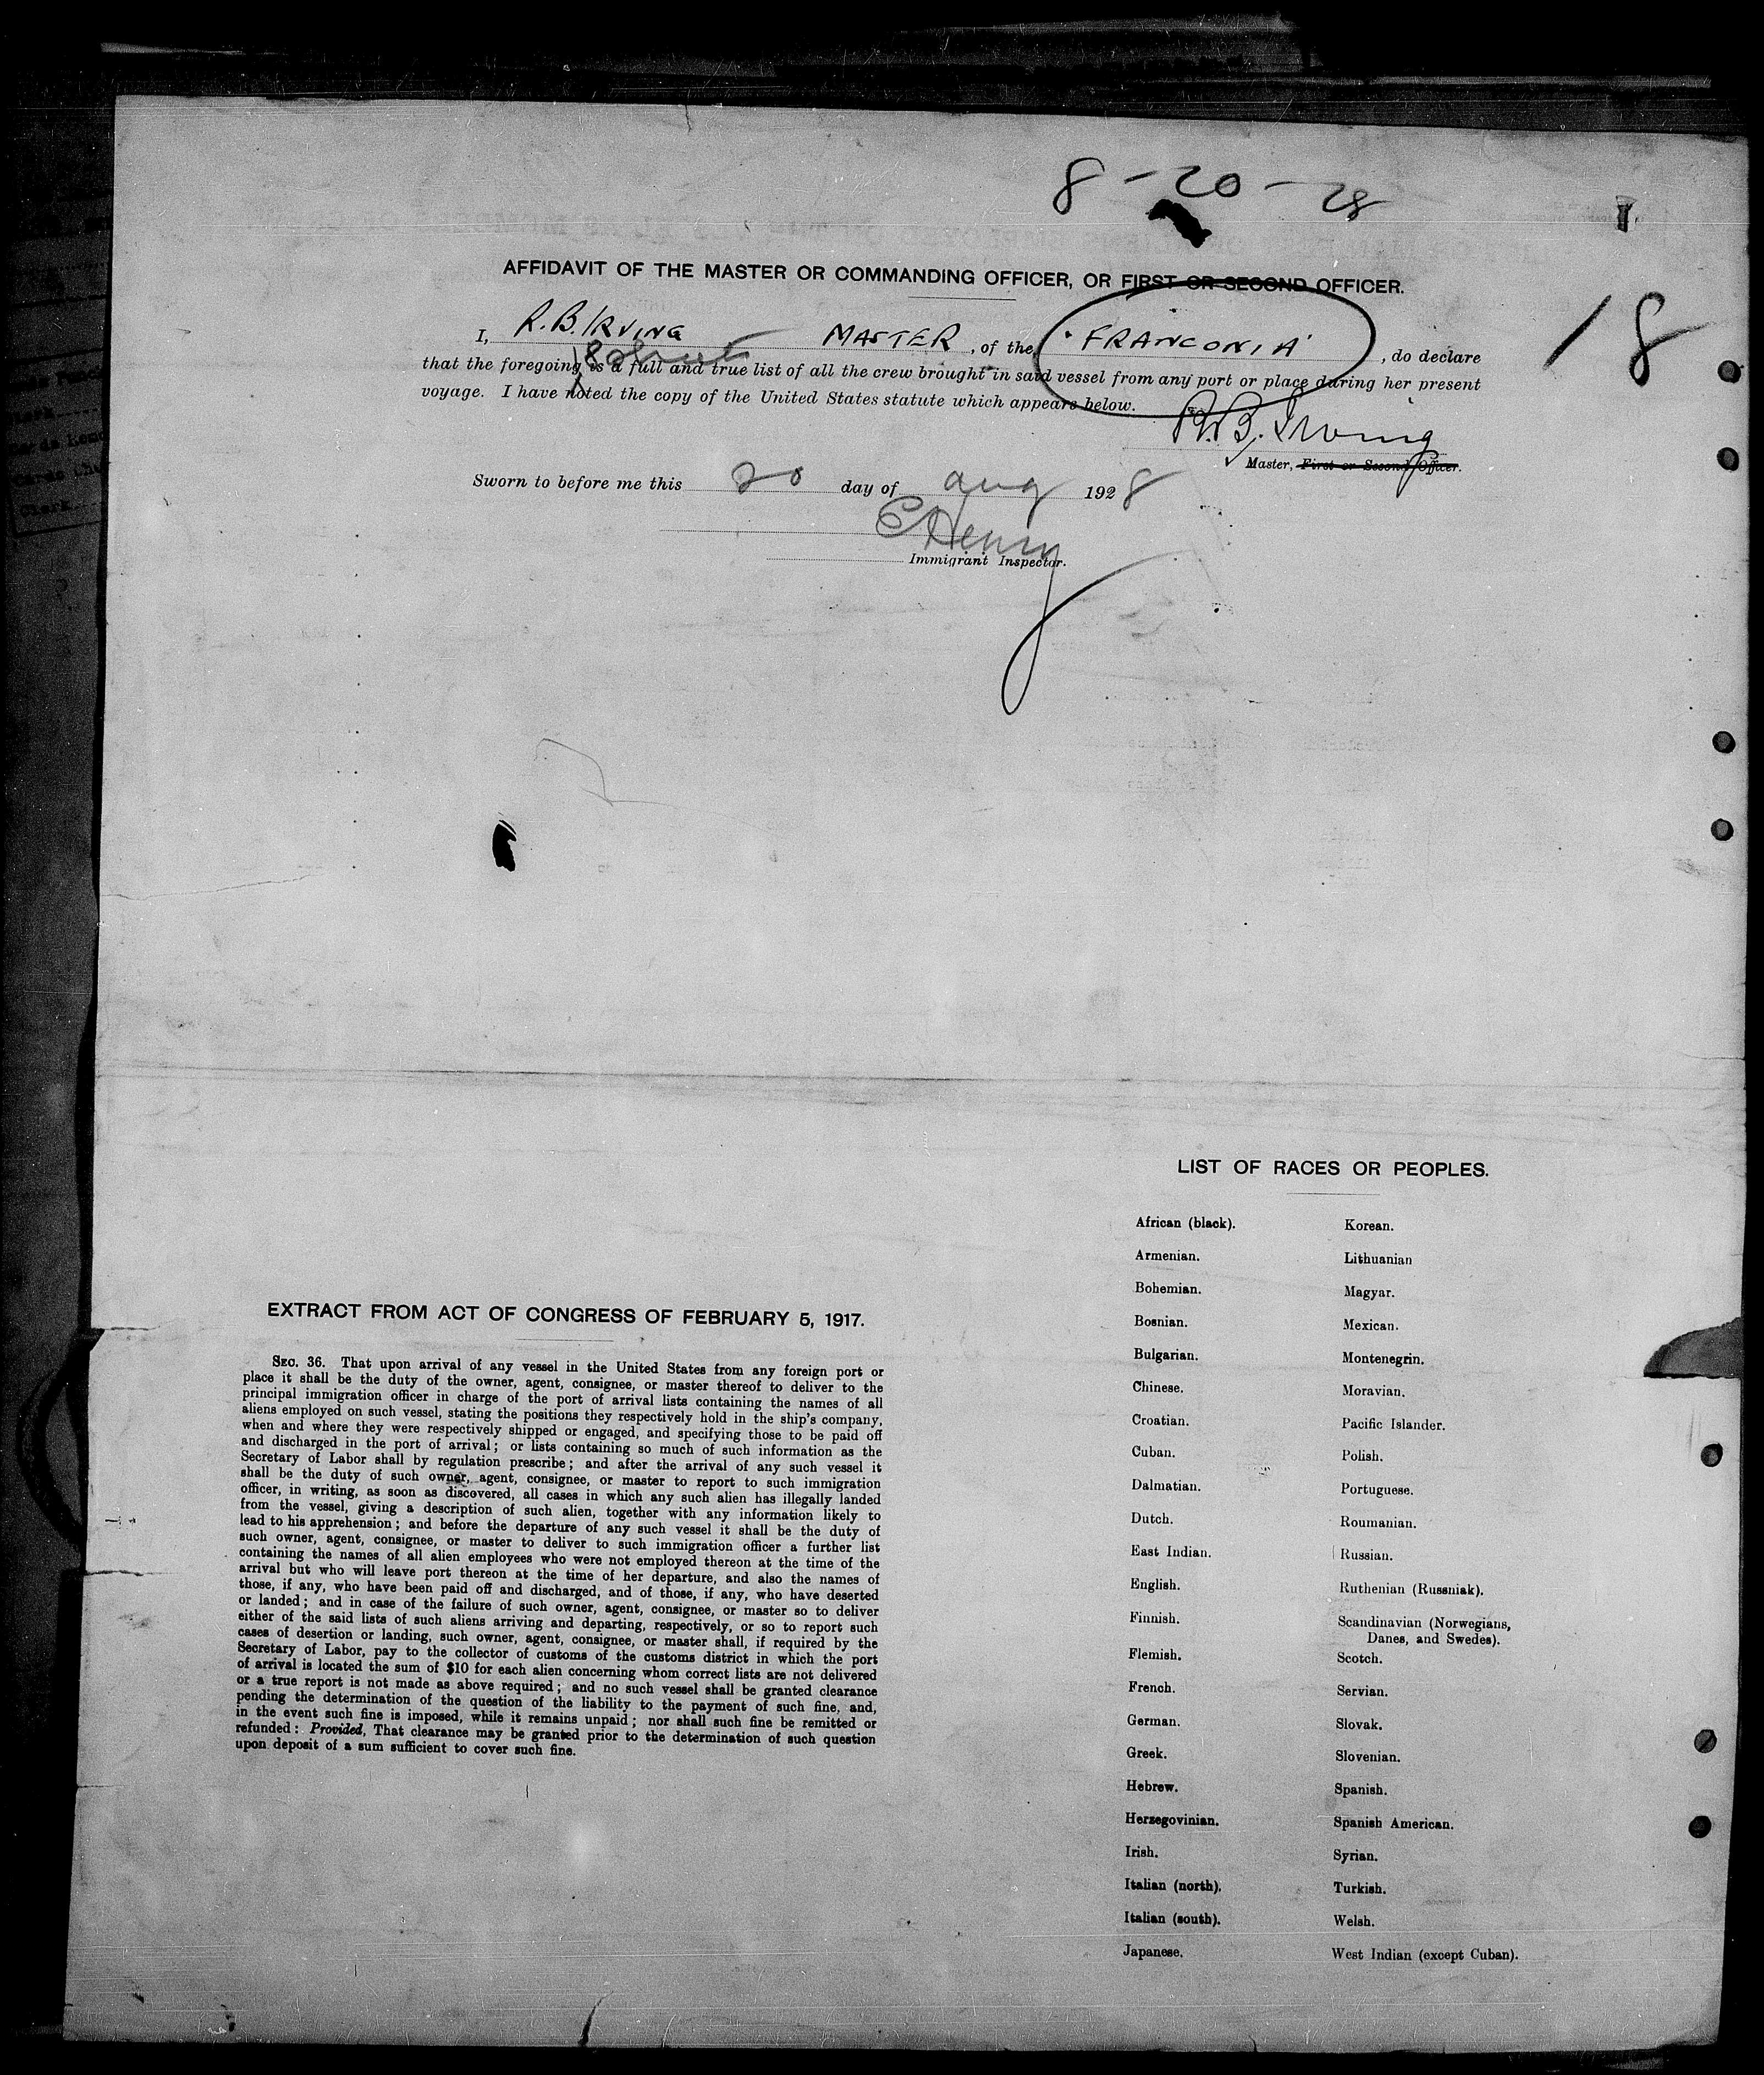 8-20-28
AFFIDAVIT OF THE MASTER OR COMMANDING OFFICER, OR FIRST OR SECOND OFFICER.
I, R. B. IRVING MASTER, of the "FRANCONIA", do declare
18
that the foregoing is a full and true list of all the crew brought in said vessel from any port or place during her present
voyage. I have noted the copy of the United States statute which appears below.
R. B. Irving
Master, First or Second Officer.
Sworn to before me this 20 day of Aug 1928
C Henry
Immigrant Inspector.
LIST OF RACES OR PEOPLES.
African (black). Korean.
Armenian. Lithuanian
Bohemian. Magyar.
Bosnian. Mexican.
Bulgarian. Montenegrin.
Chinese. Moravian.
Croatian. Pacific Islander.
Cuban. Polish.
Dalmatian. Portuguese.
Dutch. Roumanian.
East Indian. Russian.
English. Ruthenian (Russniak).
Finnish. Scandinavian (Norwegians,
Danes, and Swedes).
Flemish. Scotch.
French. Servian.
German. Slovak.
Greek. Slovenian.
Hebrew. Spanish.
Herzegovinian. Spanish American.
Irish. Syrian.
Italian (north). Turkish.
Italian (south). Welsh.
Japanese. West Indian (except Cuban).
EXTRACT FROM ACT OF CONGRESS OF FEBRUARY 5, 1917.
SEC. 36. That upon arrival of any vessel in the United States from any foreign port or
place it shall be the duty of the owner, agent, consignee, or master thereof to deliver to the
principal immigration officer in charge of the port of arrival lists containing the names of all
aliens employed on such vessel, stating the positions they respectively hold in the ship's company,
when and where they were respectively shipped or engaged, and specifying those to be paid off
and discharged in the port of arrival; or lists containing so much of such information as the
Secretary of Labor shall by regulation prescribe; and after the arrival of any such vessel it
shall be the duty of such owner, agent, consignee, or master to report to such immigration
officer, in writing, as soon as discovered, all cases in which any such alien has illegally landed
from the vessel, giving a description of such alien, together with any information likely to
lead to his apprehension; and before the departure of any such vessel it shall be the duty of
such owner, agent, consignee, or master to deliver to such immigration officer a further list
containing the names of all alien employees who were not employed thereon at the time of the
arrival but who will leave port thereon at the time of her departure, and also the names of
those, if any, who have been paid off and discharged, and of those, if any, who have deserted
or landed; and in case of the failure of such owner, agent, consignee, or master so to deliver
either of the said lists of such aliens arriving and departing, respectively, or so to report such
cases of desertion or landing, such owner, agent, consignee, or master shall, if required by the
Secretary of Labor, pay to the collector of customs of the customs district in which the port
of arrival is located the sum of $10 for each alien concerning whom correct lists are not delivered
or a true report is not made as above required; and no such vessel shall be granted clearance
pending the determination of the question of the liability to the payment of such fine, and,
in the event such fine is imposed, while it remains unpaid; nor shall such fine be remitted or
refunded: Provided, That clearance may be granted prior to the determination of such question
upon deposit of a sum sufficient to cover such fine.